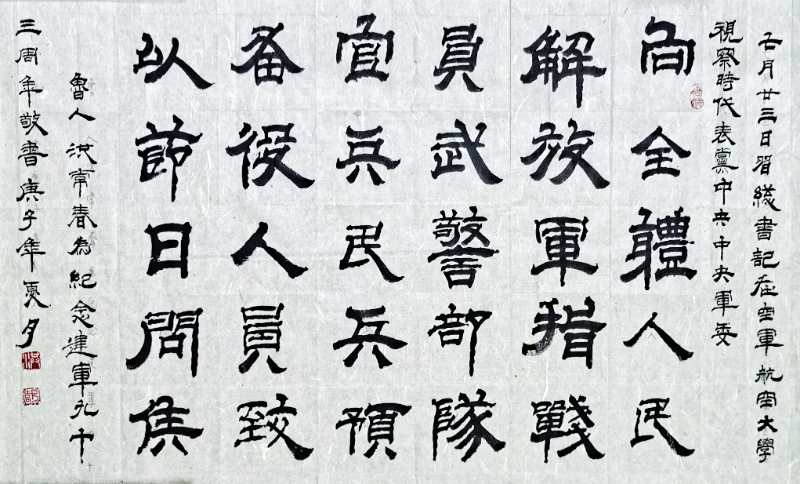 七月廿三日習總書記在空軍航空大學
視察時代表黨中央中央軍委
向全體人民
解放軍指戰
員武警部隊
官兵民兵預
备役人員致
以節日問候
魯人洪常春為紀念建軍九十
三周年敬書庚子年夏月